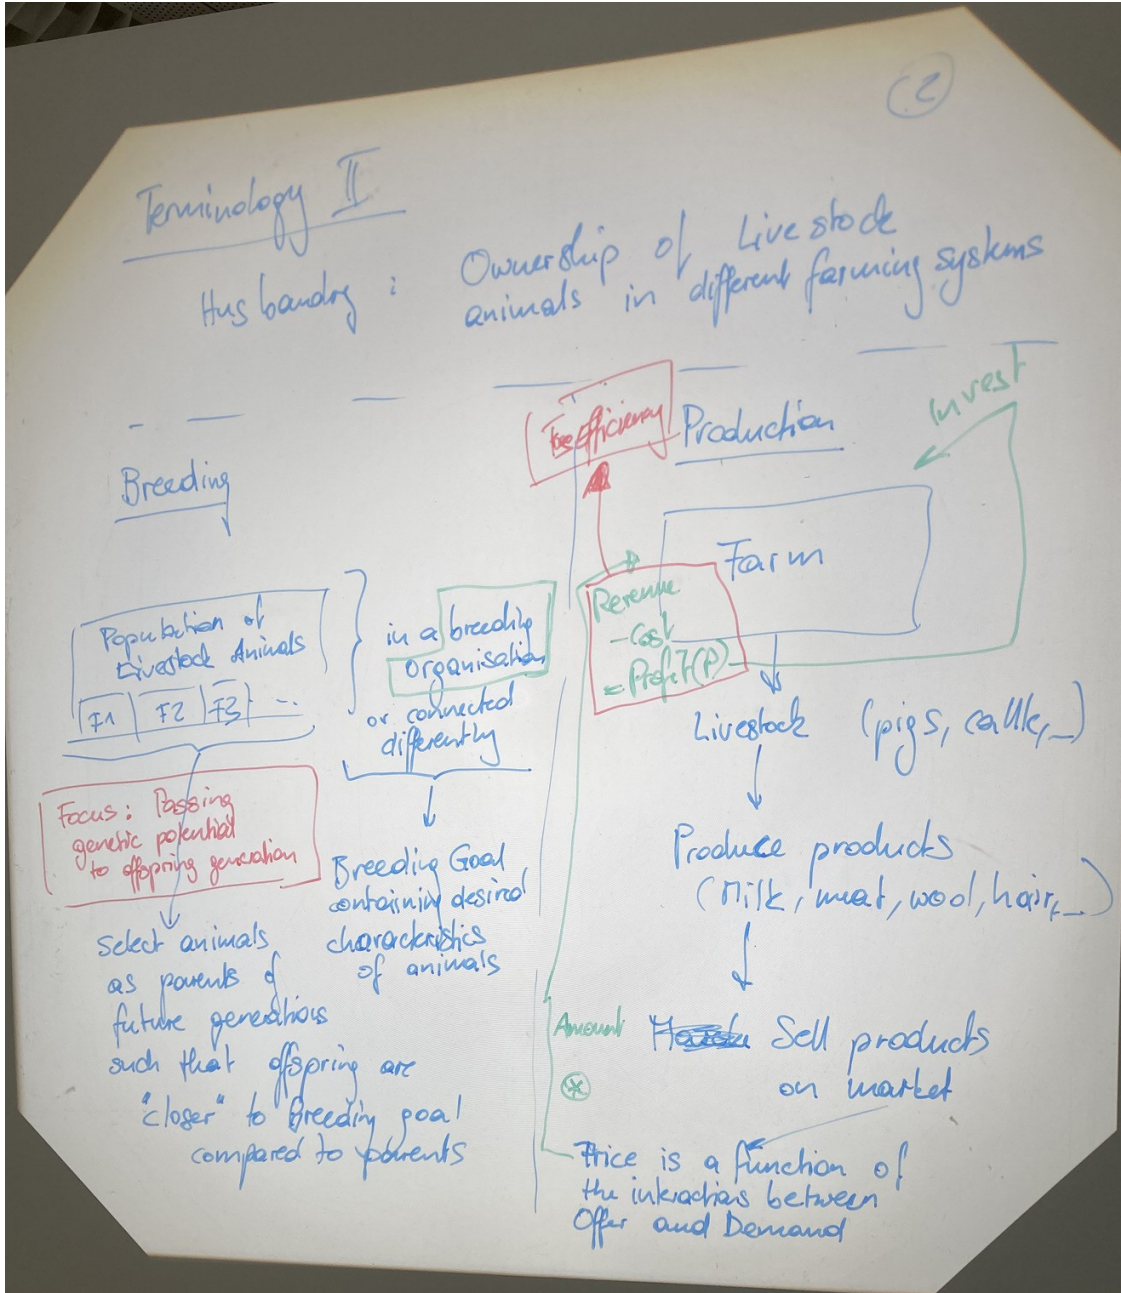 2
Terminology II
Husbandry : Ownership of Livestock
animals in different farming systems
Breeding
Population of
Livestock Animals
F1 F2 F3 ...
in a breeding
organisation
or connected
differently
Focus: Passing
genetic potential
to offspring generation
Select animals
as parents of
future generations
such that offspring are
"closer" to Breeding goal
compared to parents
Breeding Goal
containing desired
characteristics
of animals
efficiency
Production
invest
Farm
Revenue
- Cost
= Profit (P)
Livestock (pigs, cattle, ...)
Produce products
(Milk, meat, wool, hair, ...)
Amount
Sell products
on market
*
Price is a function of
the interactions between
Offer and Demand